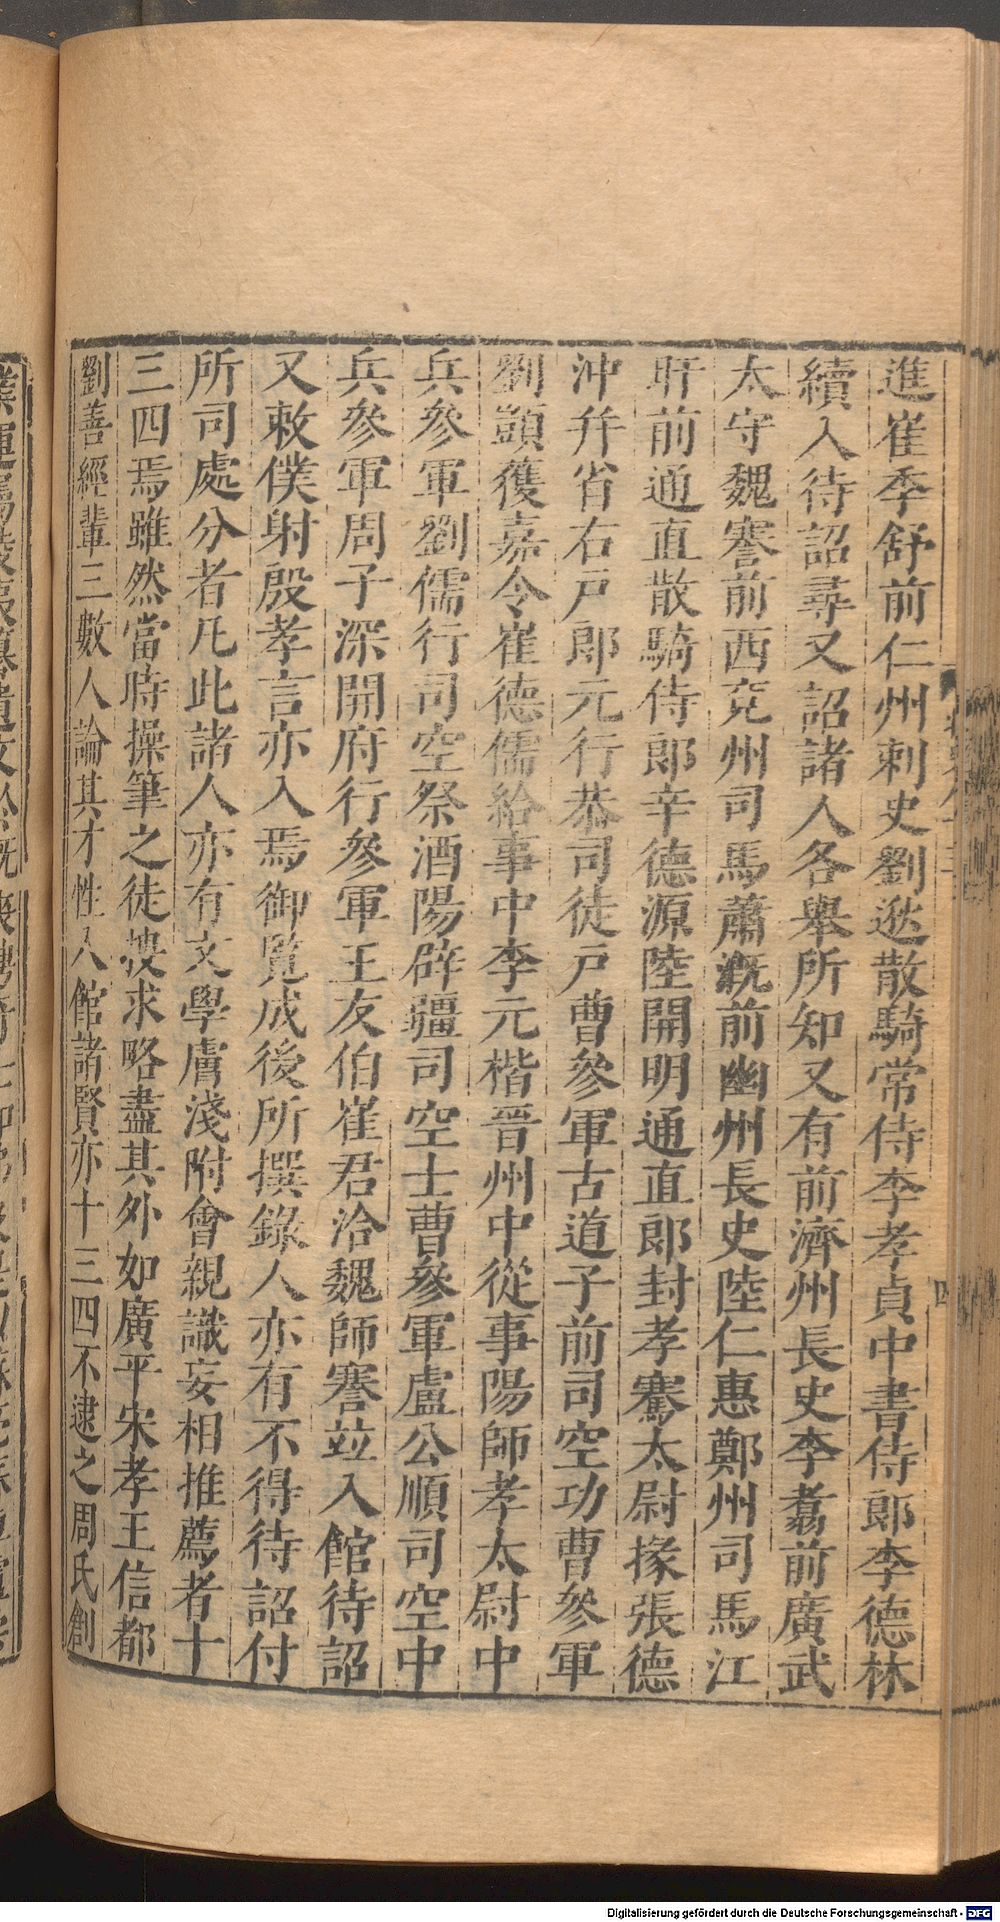 進崔季舒前仁州刺史劉逖散騎常侍李孝貞中書侍郎李德林
續入待詔尋又詔諸人各舉所知又有前濟州長史李翥前廣武
太守魏謇前西兗州司馬蕭溉前幽州長史陸仁惠鄭州司馬江
旰前通直散騎侍郎辛德源陸開明通直郎封孝騫太尉掾張德
沖并省右戶郎元行恭司徒戶曹參軍古道子前司空功曹參軍
劉顗獲嘉令崔德儒給事中李元楷晉州中從事陽師孝太尉中
兵參軍劉儒行司空祭酒陽辟疆司空士曹參軍盧公順司空中
兵參軍周子深開府行參軍王友伯崔君洽魏師謇竝入館待詔
又敕僕射段孝言亦入焉御覽成後所撰錄人亦有不得待詔付
所司處分者凡此諸人亦有文學膚淺附會親識妄相推薦者十
三四焉雖然當時操筆之徒搜求略盡其外如廣平宋孝王信都
劉善經輩三數人論其才性入館諸賢亦十三四不逮之周氏創
四
Digitalisierung gefördert durch die Deutsche Forschungsgemeinschaft - DFG